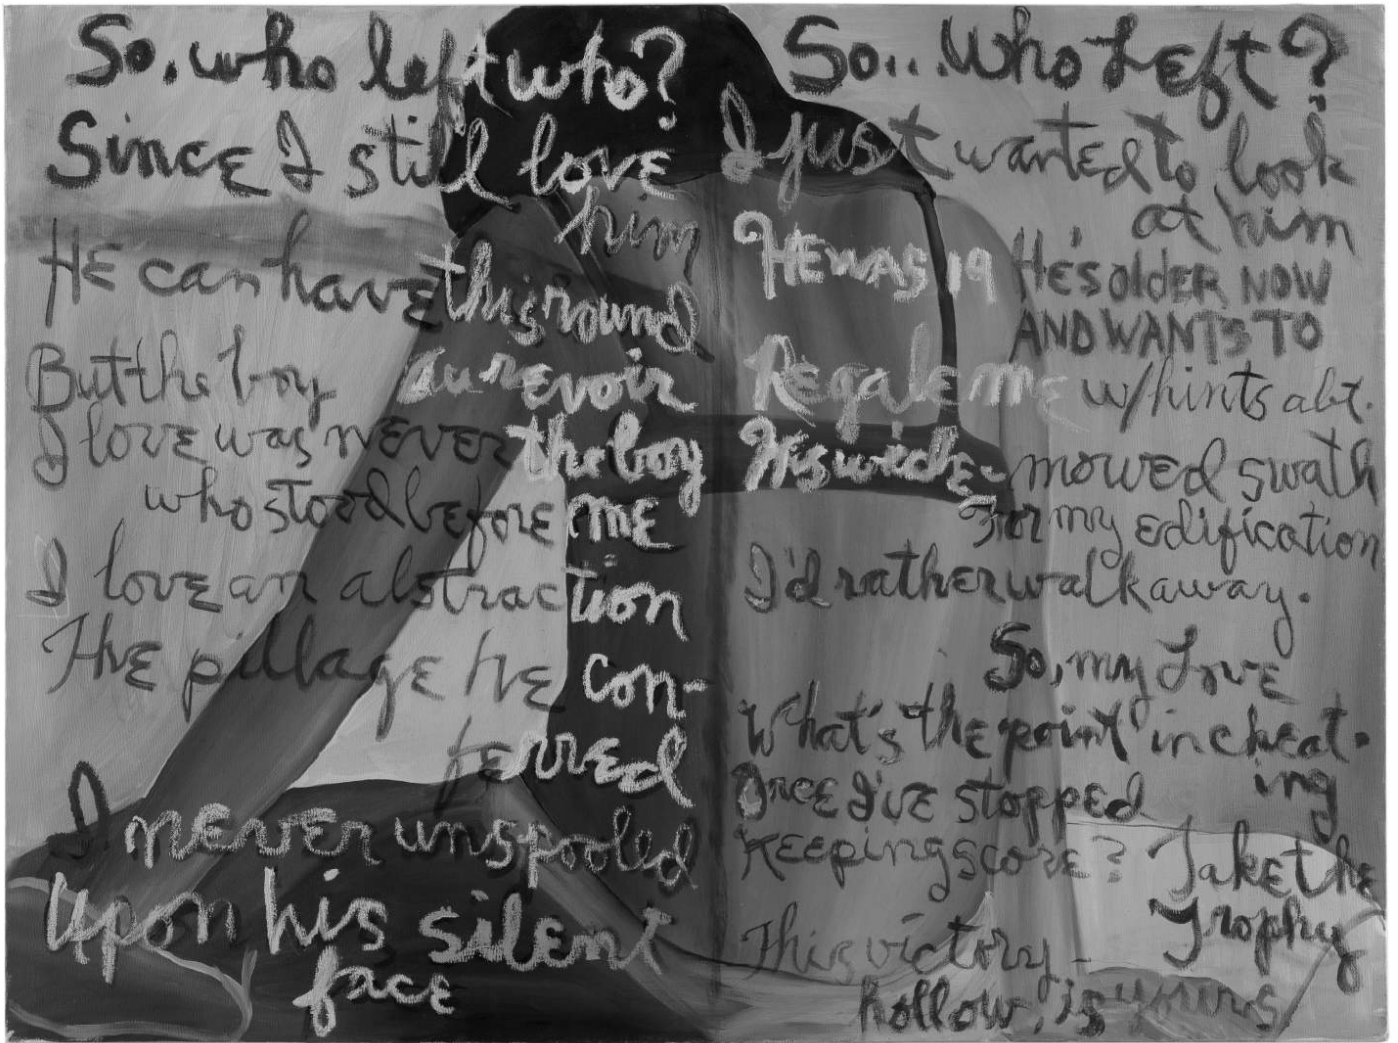 So, who left who?
Since I still love
him
He can have this round
But the boy au revoir
I love was never the boy
who stood before me
I love an abstraction
The pillage he con-
ferred
I never unspooled
upon his silent
face
So... Who Left?
I just wanted to look
at him
HE WAS 19 He's oldER NOW
AND WANTS TO
Regale me w/hints abt.
His wide-mowed swath
For my edification
I'd rather walk away.
So, my Love
What's the point in cheat-
ing
Once I've stopped
Keeping score? Take the
Trophy
This victory-
hollow, is yours